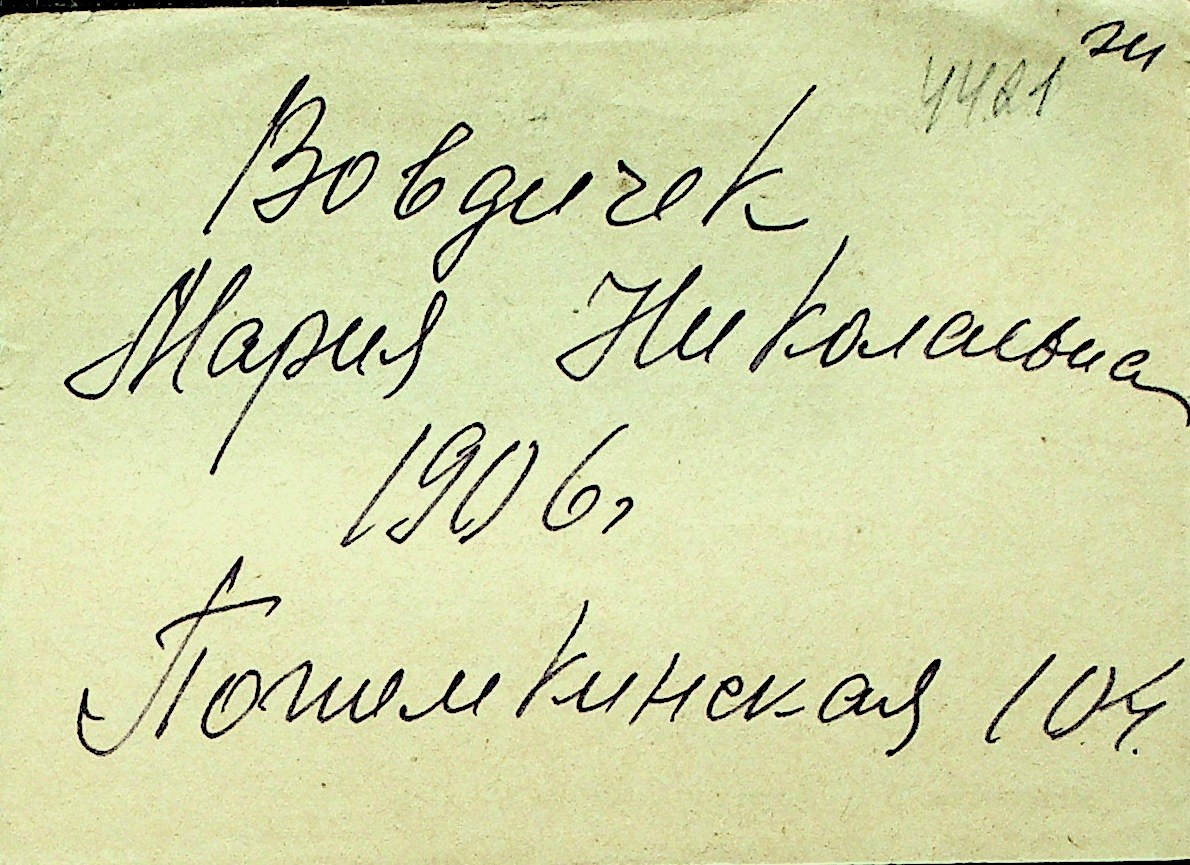 4421
Вовдичек
Мария Николаевна
1906,
Потемкинская 104.